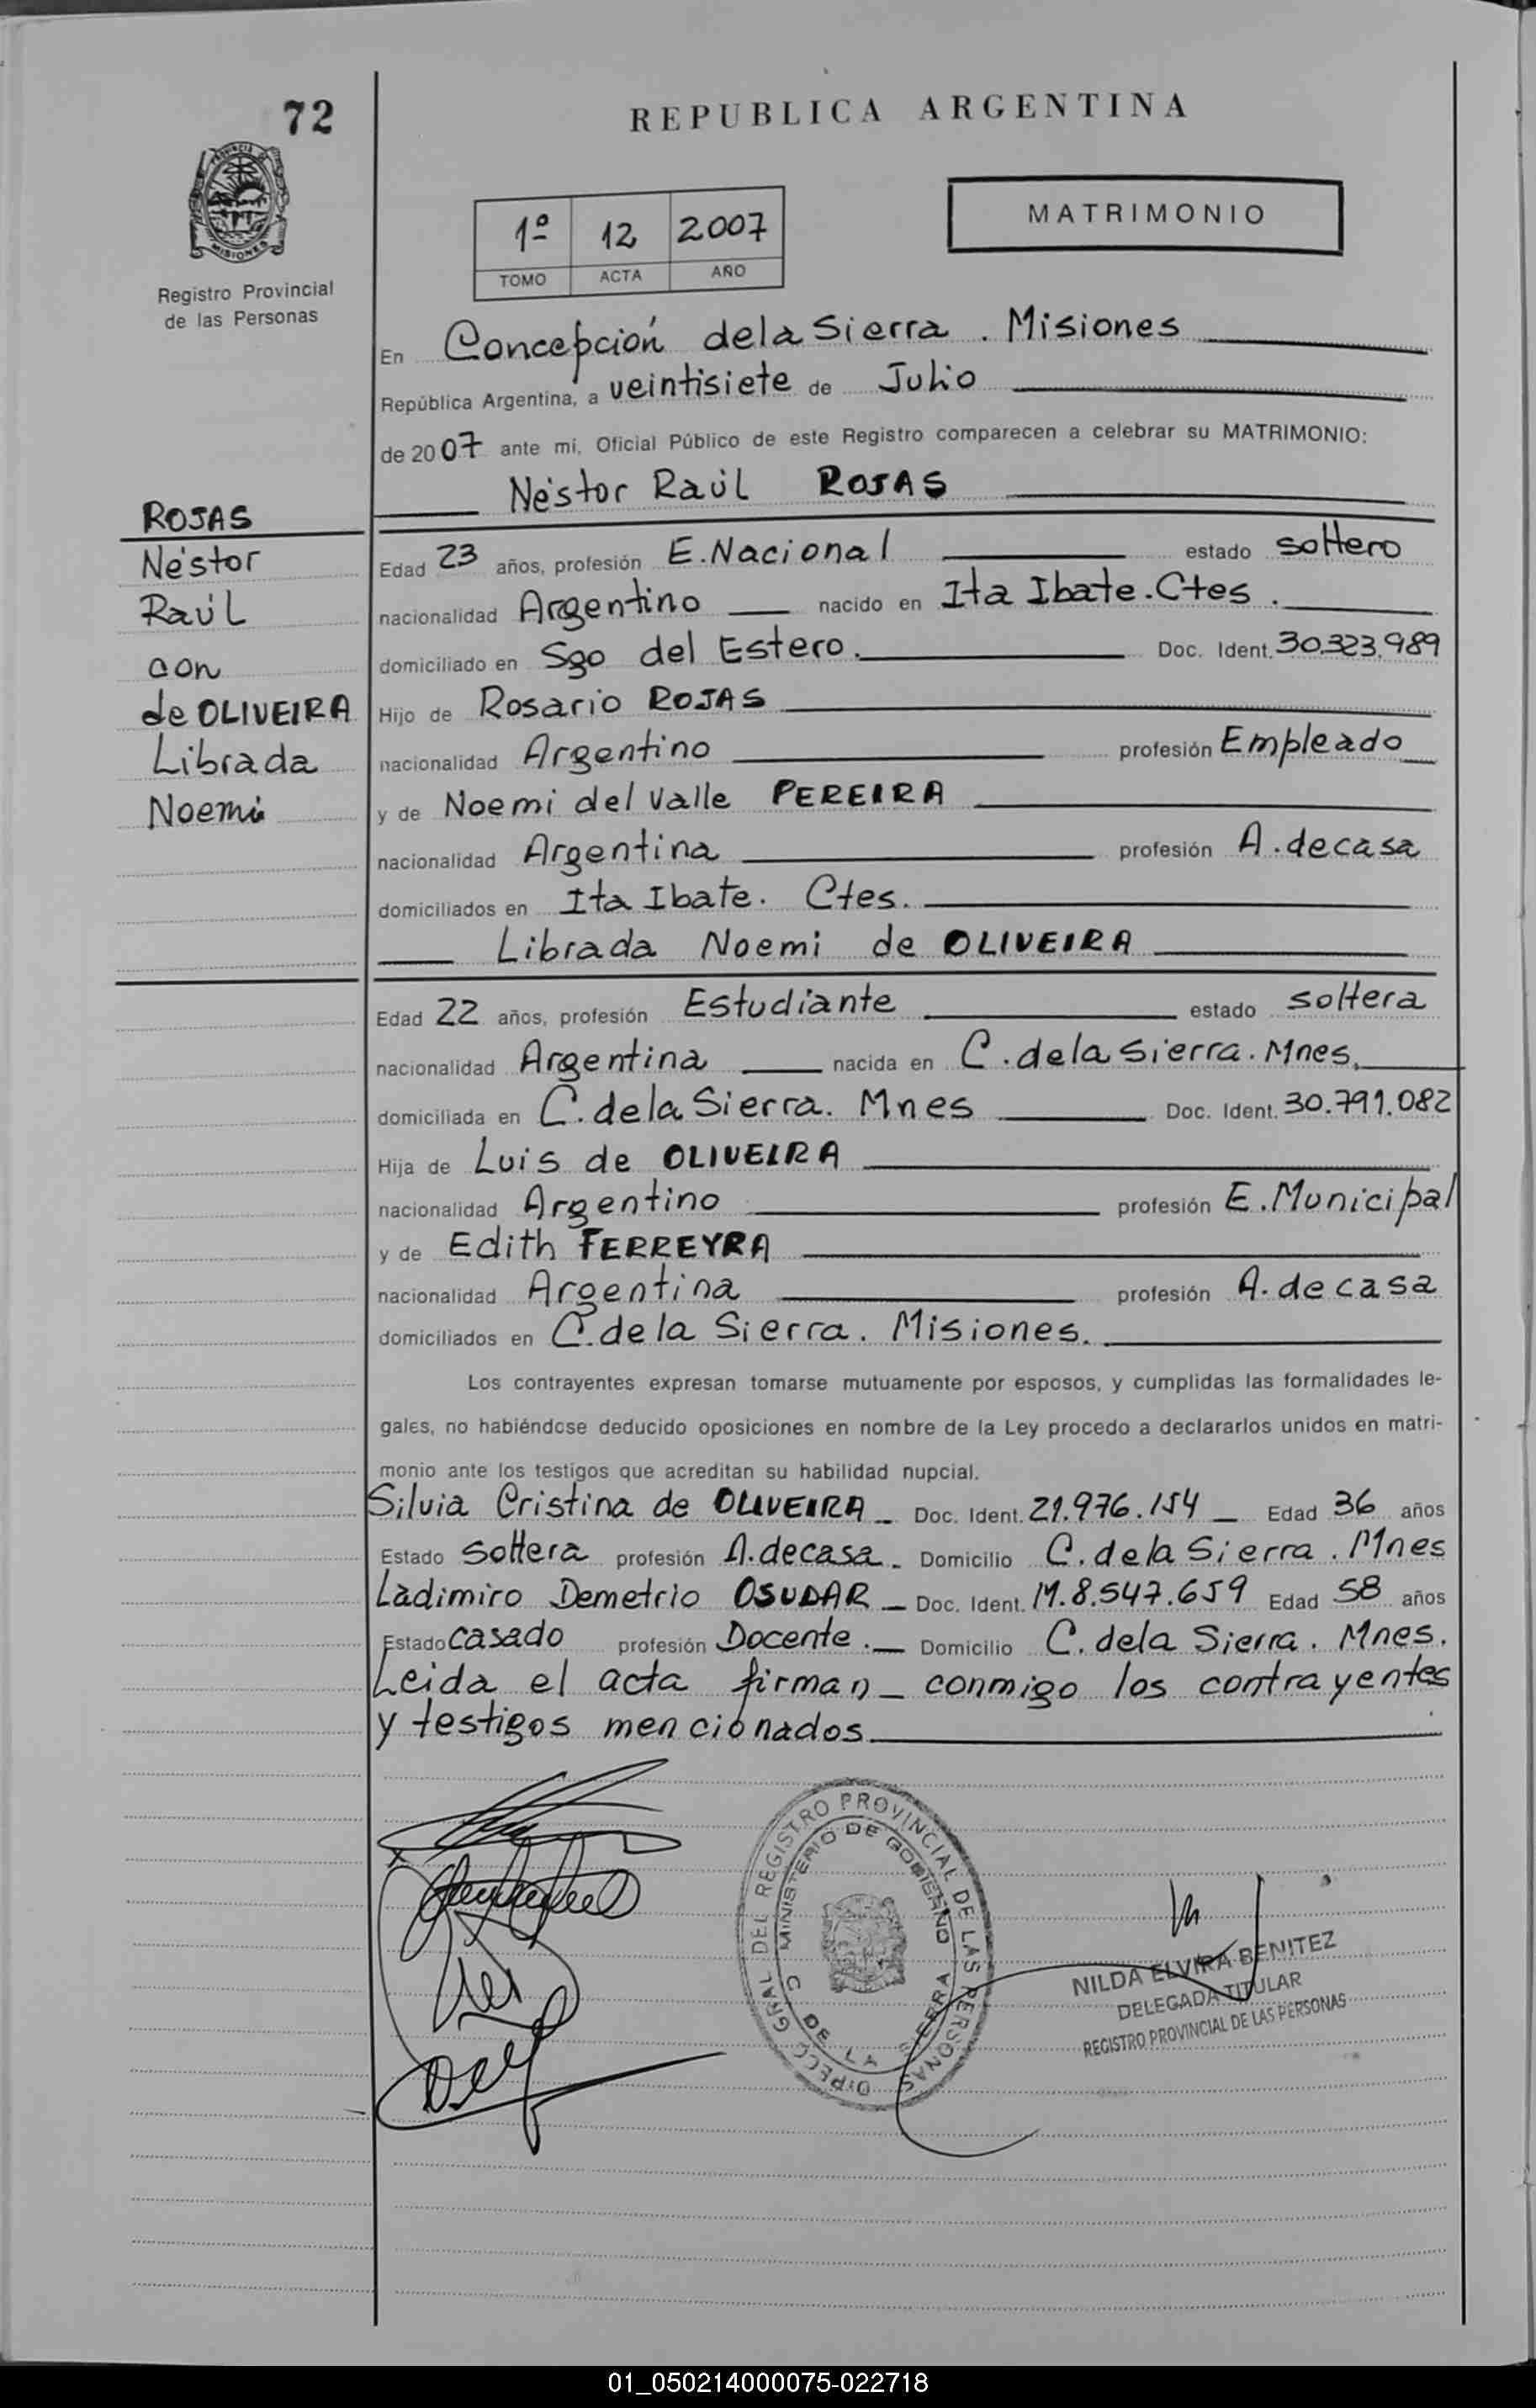 72
REPUBLICA ARGENTINA
PROVINCIA DE
MISIONES
Registro Provincial
de las Personas
1º 12 2007
TOMO ACTA AÑO
MATRIMONIO
En Concepción dela Sierra. Misiones
República Argentina, a veintisiete de Julio
de 2007 ante mí, Oficial Público de este Registro comparecen a celebrar su MATRIMONIO:
Néstor Raúl ROJAS
ROJAS
Néstor
Raúl
con
de OLIVEIRA
Librada
Noemi
Edad 23 años, profesión E. Nacional estado soltero
nacionalidad Argentino nacido en Ita Ibate. Ctes.
domiciliado en Sgo del Estero. Doc. Ident. 30.323.989
Hijo de Rosario ROJAS
nacionalidad Argentino profesión Empleado
y de Noemi del Valle PEREIRA
nacionalidad Argentina profesión A. de casa
domiciliados en Ita Ibate. Ctes.
Librada Noemi de OLIVEIRA
Edad 22 años, profesión Estudiante estado soltera
nacionalidad Argentina nacida en C. dela Sierra. Mnes.
domiciliada en C. dela Sierra. Mnes Doc. Ident. 30.791.082
Hija de Luis de OLIVEIRA
nacionalidad Argentino profesión E. Municipal
y de Edith FERREYRA
nacionalidad Argentina profesión A. de casa
domiciliados en C. de la Sierra. Misiones.
Los contrayentes expresan tomarse mutuamente por esposos, y cumplidas las formalidades le-
gales, no habiéndose deducido oposiciones en nombre de la Ley procedo a declararlos unidos en matri-
monio ante los testigos que acreditan su habilidad nupcial.
Silvia Cristina de OLIVEIRA Doc. Ident. 21.976.154 Edad 36 años
Estado soltera profesión A. de casa. Domicilio C. dela Sierra. Mnes
Ladimiro Demetrio OSUDAR Doc. Ident. M.8.547.659 Edad 58 años
Estado casado profesión Docente. Domicilio C. dela Sierra. Mnes.
Leida el acta firman conmigo los contrayentes
y testigos mencionados
DIRECC GRAL DEL REGISTRO PROVINCIAL DE LAS PERSONAS
MINISTERIO DE GOBIERNO
C DE LA SIERRA
NILDA ELVIRA BENITEZ
DELEGADA TITULAR
REGISTRO PROVINCIAL DE LAS PERSONAS
01_050214000075-022718